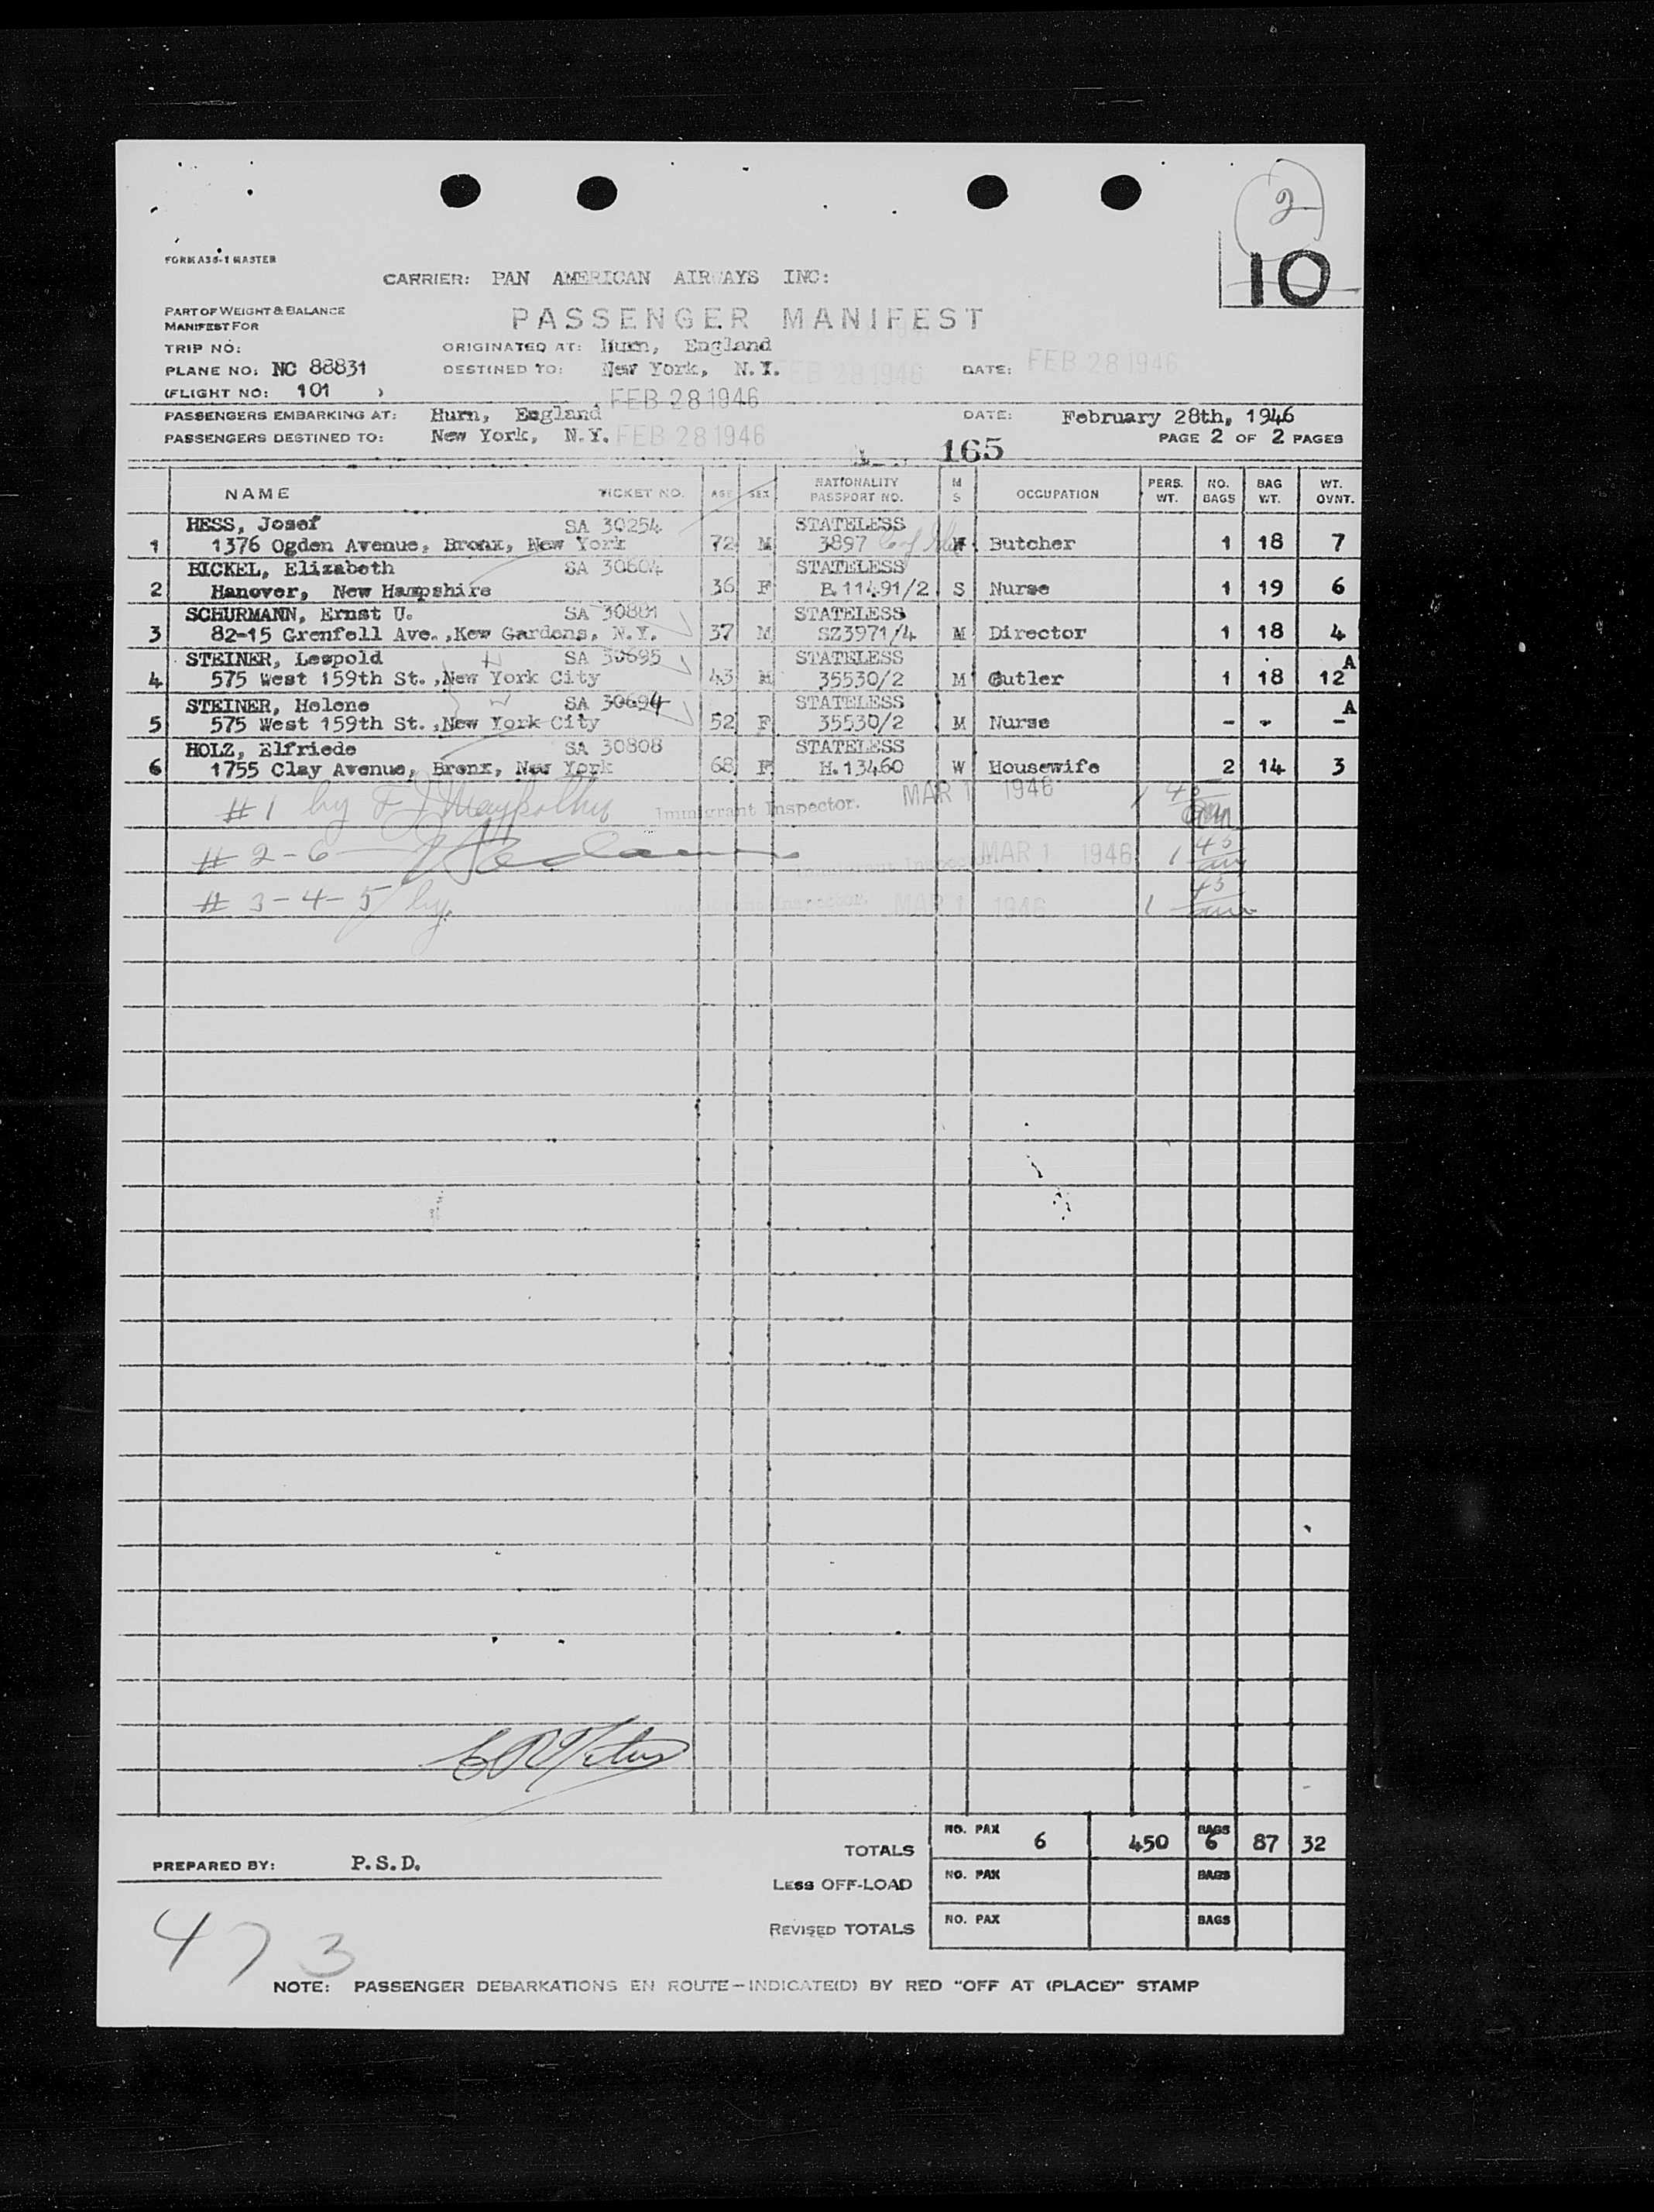 2
10
FORM A35-1 MASTER
CARRIER: PAN AMERICAN AIRWAYS INC:
PART OF WEIGHT & BALANCE
MANIFEST FOR
PASSENGER MANIFEST
TRIP NO:
ORIGINATED AT: Hurn, England
PLANE NO: NC 88831
DESTINED TO: New York, N.Y. FEB 28 1946 DATE: FEB 28 1946
(FLIGHT NO: 101 )
FEB 28 1946
PASSENGERS EMBARKING AT: Hurn, England DATE: February 28th, 1946
PASSENGERS DESTINED TO: New York, N.Y. FEB 28 1946 PAGE 2 OF 2 PAGES
165
NAME TICKET NO. AGE SEX NATIONALITY PASSPORT NO. M S OCCUPATION PERS. WT. NO. BAGS BAG WT. WT. OVNT.
HESS, Josef SA 30254 STATELESS
1 1376 Ogden Avenue, Bronx, New York 72 M 3897 W Butcher 1 18 7
BICKEL, Elizabeth SA 30604 STATELESS
2 Hanover, New Hampshire 36 F B.11491/2 S Nurse 1 19 6
SCHURMANN, Ernst U. SA 30801 STATELESS
3 82-15 Grenfell Ave.,Kew Gardens, N.Y. 37 M SZ3971/4 M Director 1 18 4
STEINER, Leopold SA 30695 STATELESS A
4 575 West 159th St.,New York City 43 M 35530/2 M Cutler 1 18 12
STEINER, Helene SA 30694 STATELESS A
5 575 West 159th St.,New York City 52 F 35530/2 M Nurse - - -
HOLZ, Elfriede SA 30808 STATELESS
6 1755 Clay Avenue, Bronx, New York 68 F H.13460 W Housewife 2 14 3
# 1 by Immigrant Inspector. MAR 1 1946
# 2-6 Immigrant Inspector MAR 1 1946
# 3-4-5 by Immigrant Inspector. MAR 1 1946
TOTALS NO. PAX 6 450 BAGS 6 87 32
PREPARED BY: P.S.D.
LESS OFF-LOAD NO. PAX BAGS
REVISED TOTALS NO. PAX BAGS
473
NOTE: PASSENGER DEBARKATIONS EN ROUTE-INDICATE(D) BY RED "OFF AT (PLACE)" STAMP